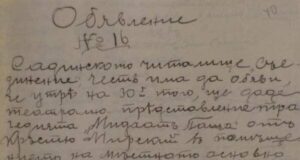 Обявление
№ 16
40
Сладинското читалище, Сѫе-
динение честь има да обяви,
че утрѣ на 30й того, ще даде
театрално прѣдставление тра-
гедията „Мидхатъ Паша" отъ
Кръстю Мирский въ помѣще-
нието на мѣстното основно